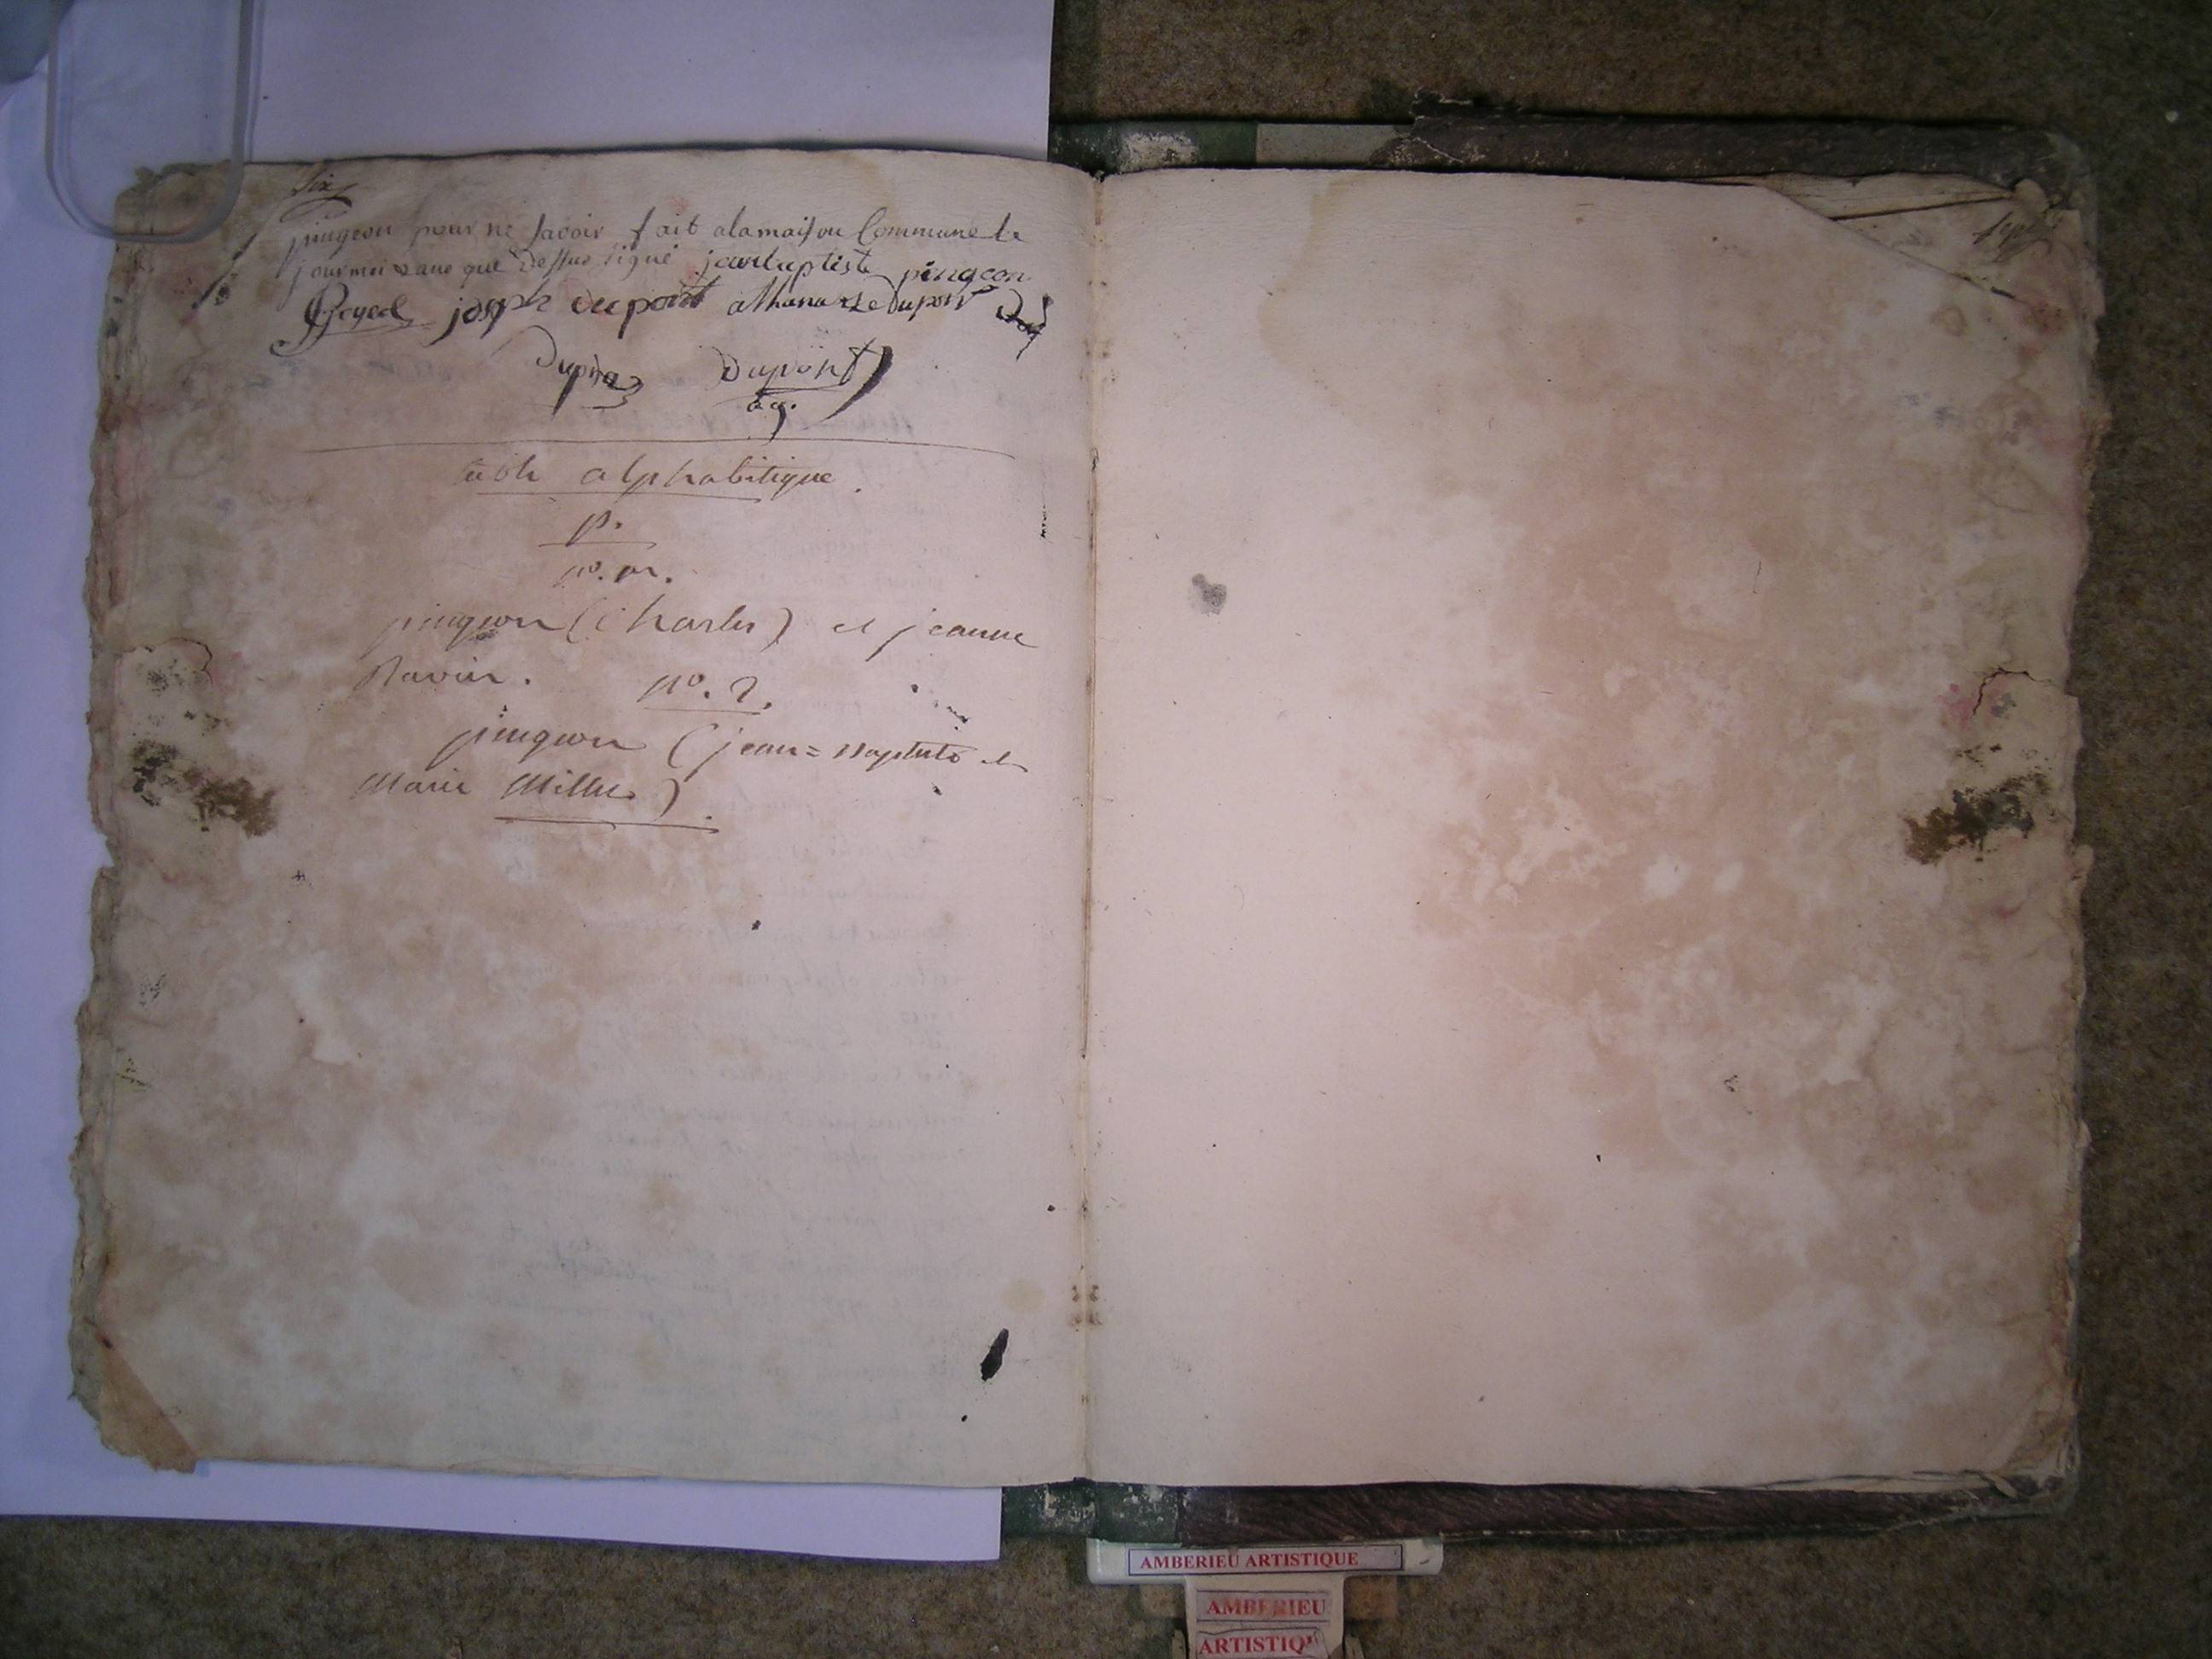 Six
pingeon pour ne savoir fait a la maison Commune le
jour moi & ans que dessus signé jean baptiste pingeon
joseph dupont athanaze Dupont
Dupras Dupont
ag.
table alphabitique
p.
n°. 1er.
pingeon (Charles) et jeanne
Ravier.
n°. 2.
pingeon (jean=Baptiste et
Marie Millet)
sept
AMBERIEU ARTISTIQUE
AMBERIEU
ARTISTIQU